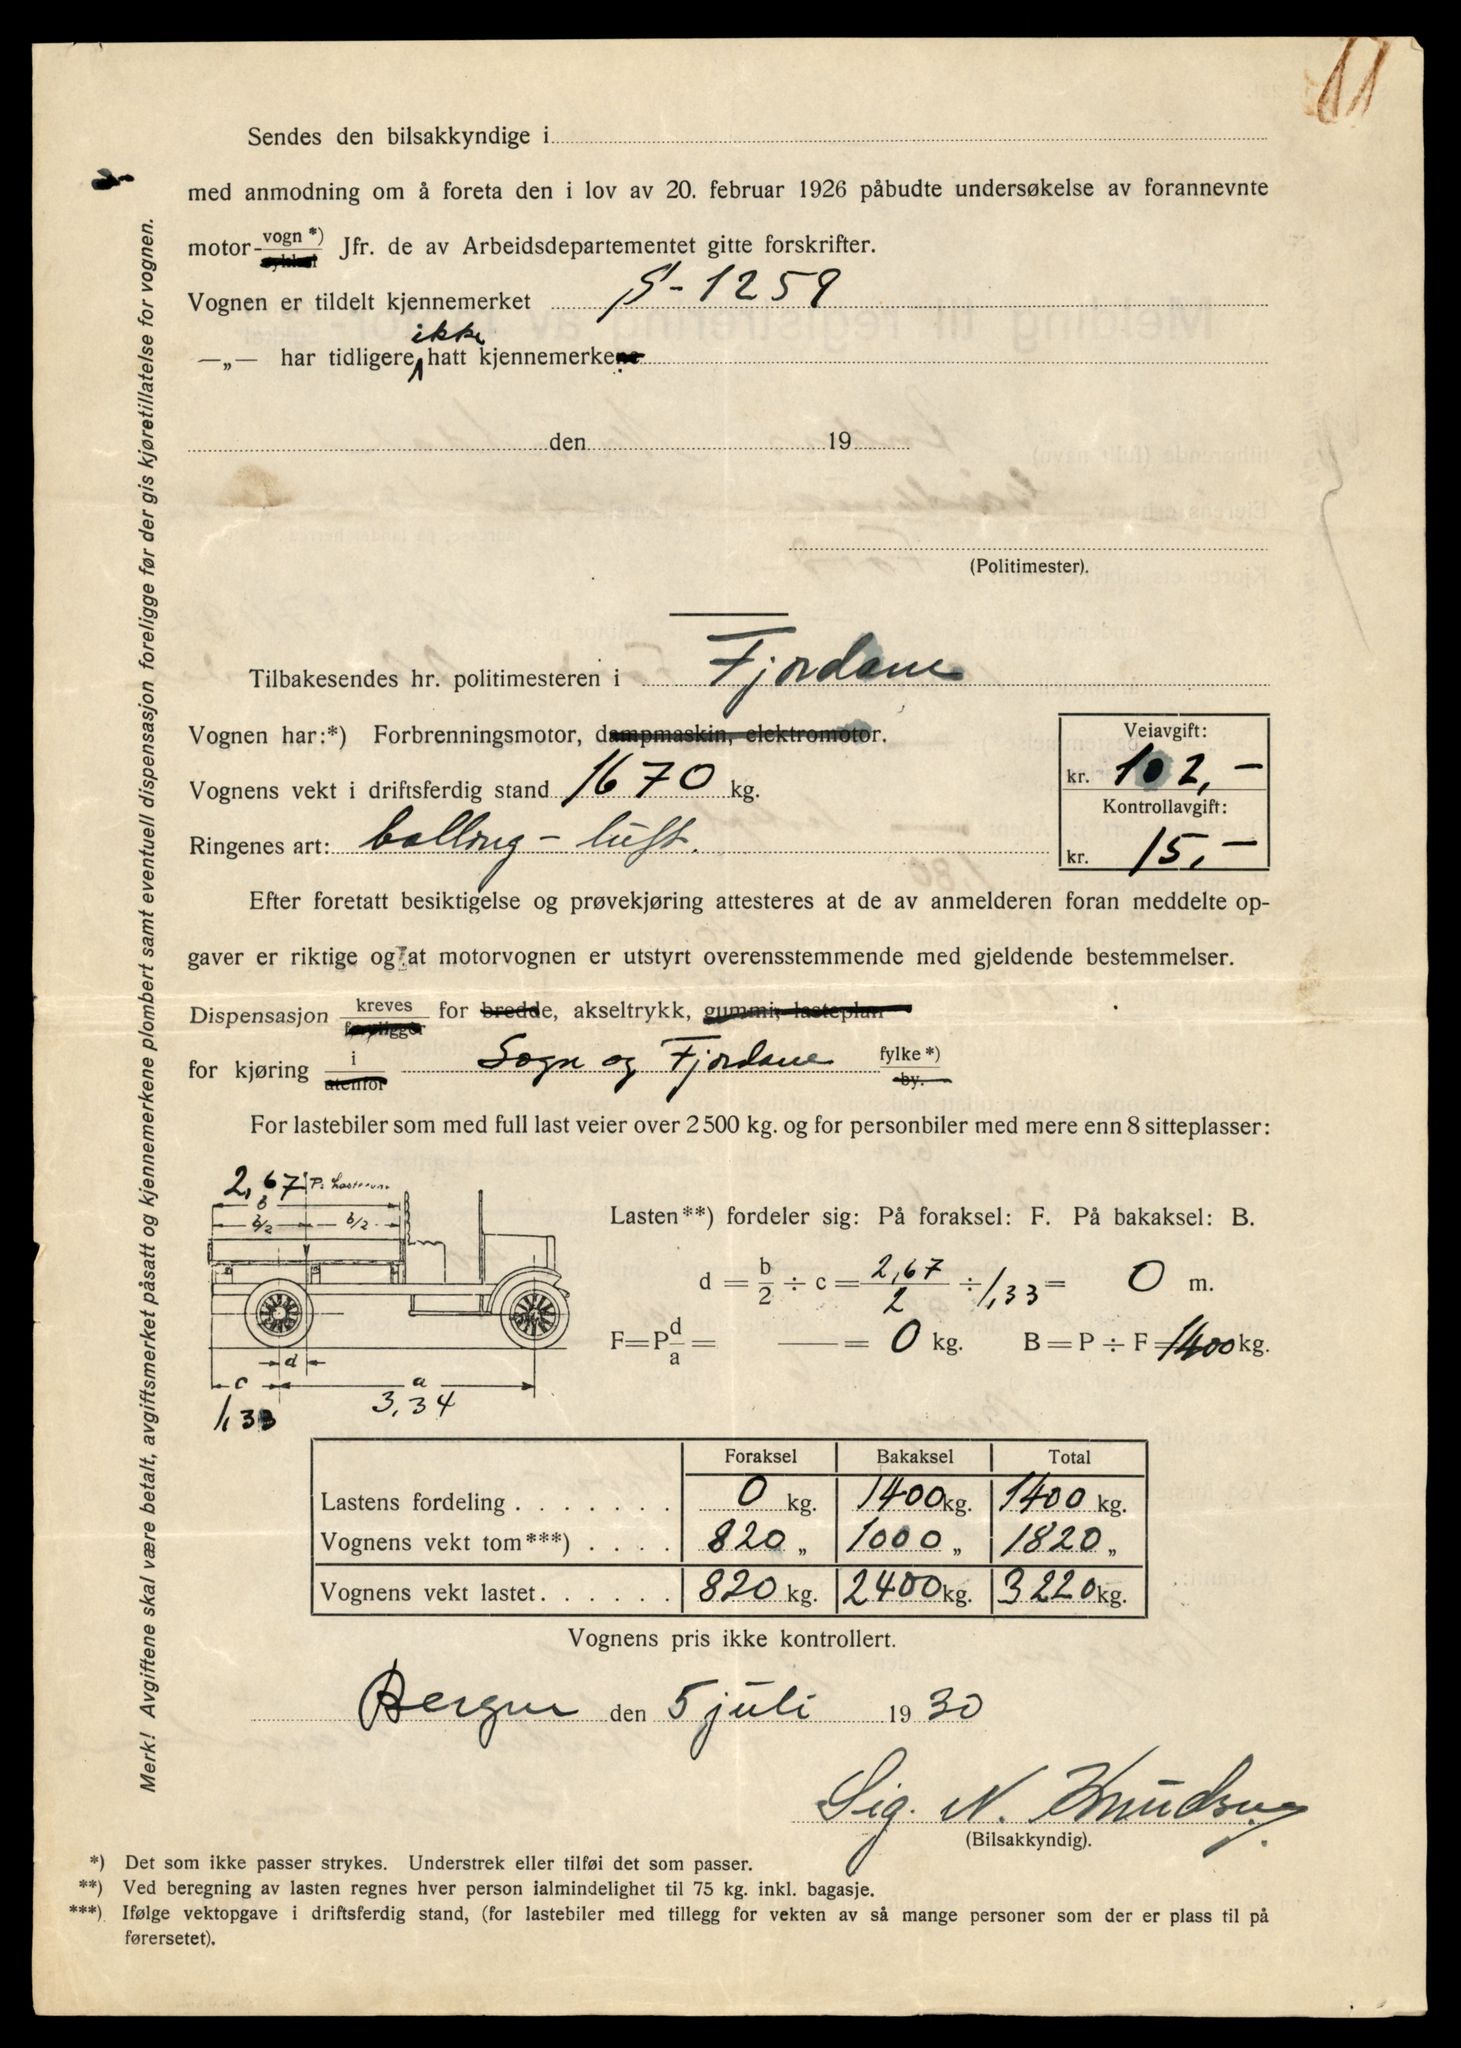 11
Sendes den bilsakkyndige i
med anmodning om å foreta den i lov av 20. februar 1926 påbudte undersøkelse av forannevnte
motor- vogn*) Jfr. de av Arbeidsdepartementet gitte forskrifter.
Vognen er tildelt kjennemerket S-1259
ikke
—„— har tidligere hatt kjennemerkene
den 19
(Politimester).
Tilbakesendes hr. politimesteren i Fjordane
Vognen har:*) Forbrenningsmotor, dampmaskin, elektromotor.
Veiavgift:
kr. 102,—
Vognens vekt i driftsferdig stand 1670 kg.
Kontrollavgift:
kr. 15,—
Ringenes art: balling - luft.
Efter foretatt besiktigelse og prøvekjøring attesteres at de av anmelderen foran meddelte op-
gaver er riktige og at motorvognen er utstyrt overensstemmende med gjeldende bestemmelser.
Dispensasjon kreves foreligger for bredde, akseltrykk, gummi, lasteplan
for kjøring i utenfor Sogn og Fjordane fylke*) by.
For lastebiler som med full last veier over 2500 kg. og for personbiler med mere enn 8 sitteplasser:
2,67 P=
b
b/2 b/2
Lasten**) fordeler sig: På foraksel: F. På bakaksel: B.
d = b/2 ÷ c = 2,67/2 ÷ 1,33 = 0 m.
F = P d/a = — = 0 kg. B = P ÷ F = 1400 kg.
d
c a
1,33 3,34
Foraksel Bakaksel Total
Lastens fordeling . . . . . . . 0 kg. 1400 kg. 1400 kg.
Vognens vekt tom***) . . . . 820 „ 1000 „ 1820 „
Vognens vekt lastet . . . . . . 820 kg. 2400 kg. 3220 kg.
Vognens pris ikke kontrollert.
Bergen den 5 juli 1930
Sig. N. Knudsen
(Bilsakkyndig).
*) Det som ikke passer strykes. Understrek eller tilføi det som passer.
**) Ved beregning av lasten regnes hver person ialmindelighet til 75 kg. inkl. bagasje.
***) Ifølge vektopgave i driftsferdig stand, (for lastebiler med tillegg for vekten av så mange personer som der er plass til på
førersetet).
Merk! Avgiftene skal være betalt, avgiftsmerket påsatt og kjennemerkene plombert samt eventuell dispensasjon foreligge før der gis kjøretillatelse for vognen.